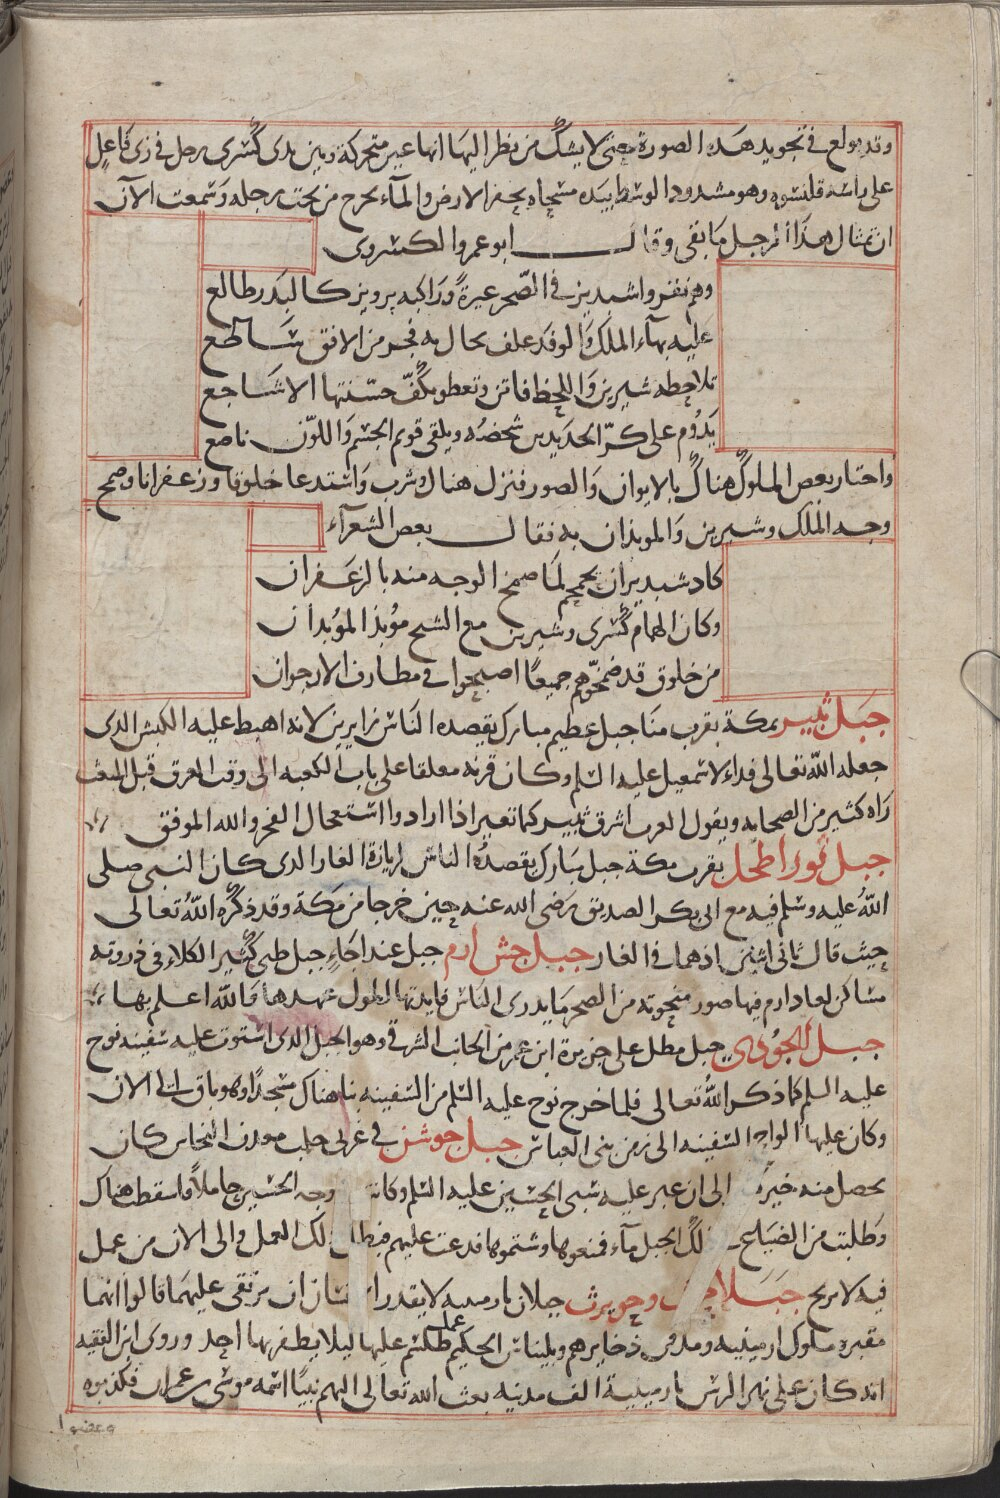 وقد بولغ في تجويد هذه الصورة حتى لا يشك من نظر اليها انها غير متحركة وبين يدى كسرى رجل فى زى فاعل
على راسه قلنسوه وهو مشدود الوسط بيده مسحاه يحفر الارض والمآء يخرج من تحت رجله وسمعت الآن
ان تمثال هذا الرجل ما بقى وقال ابو عمرو الكسروى
وهم نقروا شبديز فى الصخر عبرةً وراكبه برويز كالبدر طالع
عليه بهآء الملك والوفد عكف يخال به فجر من الافق ساطع
تلاحظه شيرين واللحظ فاتن وتعطو بكفّ حسّنتها الاشاجع
يدوم على كرّ الجديدين شخصه ويلقى قويم الجسم واللون ناصع
واجتاز بعض الملوك هناك بالايوان والصور فنزل هناك وشرب واستدعا خلوقا وزعفرانا وضمخ
وجه الملك وشيرين والموبذان به فقال بعض الشعرآء
كاد شبديز ان يحمحم لما ضمخ الوجه منه بالزعفران
وكان الهمام كسرى وشيرين مع الشيخ موبذ الموبذان
من خلوق قد ضمخوهم جميعًا اصبحوا فى مطارف الارجوان
جبل ثبير بمكة بقرب منا جبل عظيم مبارك يقصده الناس زايرين لانه اهبط عليه الكبش الذى
جعله الله تعالى فداء لاسمعيل عليه السلم وكان قرنه معلقا على باب الكعبه الى وقت الغرق قبل المبعث
راه كثير من الصحابه ويقول العرب اشرق ثبير كما نغير اذا ارادوا استعجال الفجر والله الموفق
جبل ثور اطحل بقرب مكة جبل مبارك يقصده الناس لزيارة الغار الذى كان النبى صلى
الله عليه وسلم فيه مع ابى بكر الصديق رضى الله عنه حين خرجا من مكة وقد ذكره الله تعالى
حيث قال ثانى اثنين اذ هما فى الغار جبل جش ارم جبل عند اجاء جبل طى كثير الكلاء فى ذروته
مساكن لعاد ارم فيها صور منحوته من الصخر ما يدرى الناس فايدتها لطول عهدها والله اعلم بها
جبل الجودى جبل مطل على جزيرة ابن عمر من الجانب الشرقى وهو الجبل الذى استوت عليه سفينه نوح
عليه السلم كما ذكر الله تعالى فلما خرج نوح عليه السلم من السفينه بنا هناك مسجدًا وهو باق الى الان
وكان عليها الواح السفينه الى زمن بنى العباس جبل جوشن فى غربى حلب معدن النحاس كان
يحصل منه خير الى ان عبر عليه سبى الحسين عليه السلم وكان وجه الحسين حاملاً فاسقط هناك
وطلبت من الصناع لك الجبل مآء فمنعوها وشتموها فدعت عليهم فبطل لك العمل والى الان من عمل
فيه لا يربح جبلا وحويرث جبلان بارمينيه لا يقدر انسان ان يرتقى عليهما قالوا انهما
مقبره ملوك ارمينيه ومدفن ذخايرهم وبليناس الحكيم عمل طلسم عليها ليلا يظفر بها احد وروى ابن الفقيه
انه كان على نهر الرس بارمينية الف مدينه بعث الله تعالى اليهم نبيًا اسمه موسى بن عمران فكذبوه